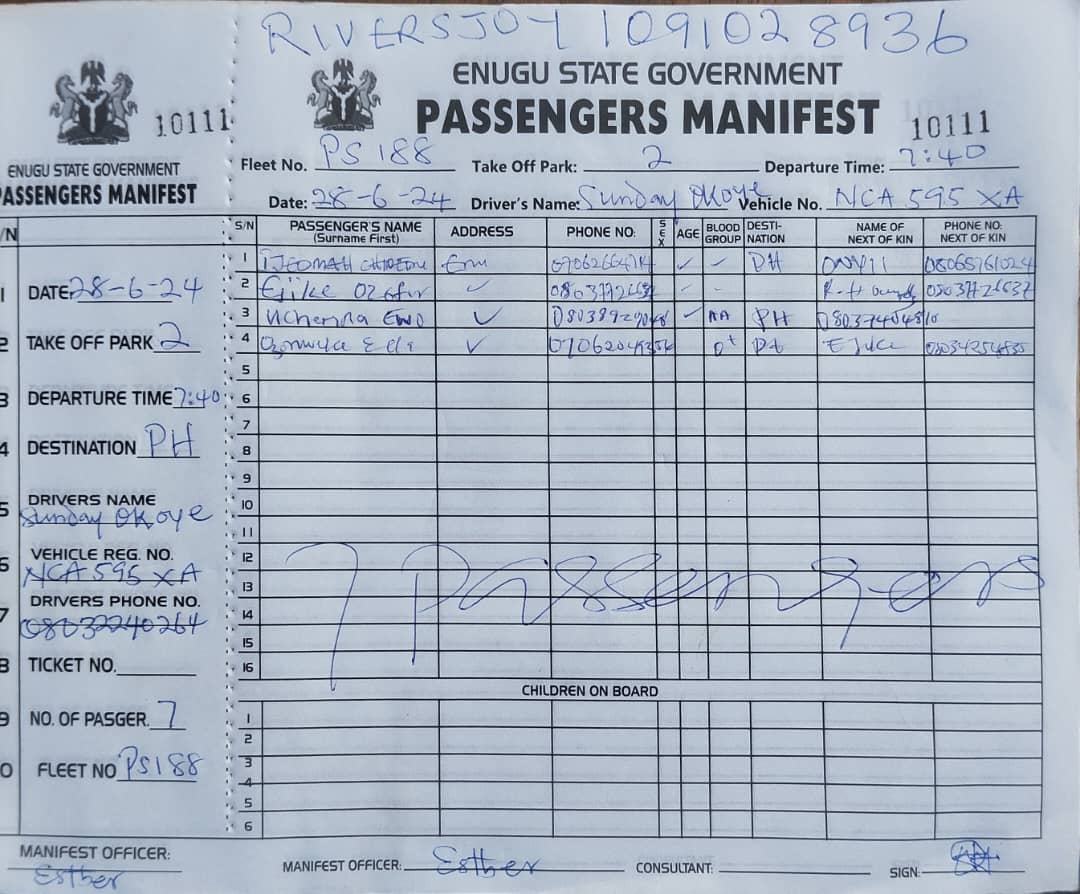 RIVERSJOY 1091028936
ENUGU STATE GOVERNMENT
PASSENGERS MANIFEST
10111
Fleet No. PS 188 Take Off Park: 2 Departure Time: 7:40
Date: 28-6-24 Driver's Name: Sunday Okoye Vehicle No. NCA 595 XA
S/N PASSENGER'S NAME (Surname First) ADDRESS PHONE NO: SEX AGE BLOOD GROUP DESTI-NATION NAME OF NEXT OF KIN PHONE NO: NEXT OF KIN
1 IJEOMAH ✓ – PH 08065761024
2 Ejike ✓ - -
3 Uchenna ✓ ✓ AA PH
4 ✓ O+
5
6
7
8
9
10
11
12
13
14
15
16
7 Passengers
CHILDREN ON BOARD
1
2
3
4
5
6
MANIFEST OFFICER: Esther CONSULTANT: SIGN:
10111
ENUGU STATE GOVERNMENT
PASSENGERS MANIFEST
/N
1 DATE 28-6-24
2 TAKE OFF PARK 2
3 DEPARTURE TIME 7:40
4 DESTINATION PH
5 DRIVERS NAME
Sunday Okoye
6 VEHICLE REG. NO.
NCA 595 XA
7 DRIVERS PHONE NO.
08032240264
8 TICKET NO.
9 NO. OF PASGER. 7
0 FLEET NO PS188
MANIFEST OFFICER:
Esther